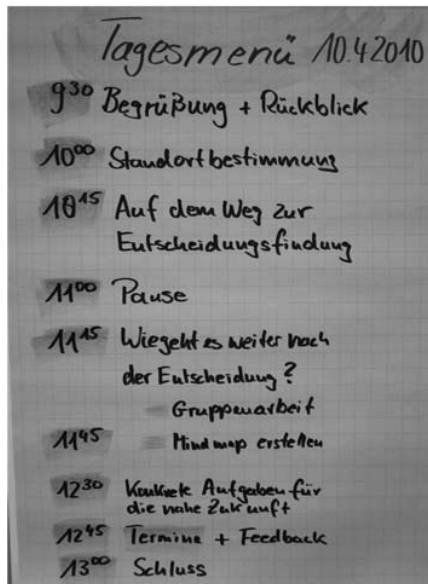 Tagesmenü 10.4.2010
9³⁰ Begrüßung + Rückblick
10⁰⁰ Standortbestimmung
10¹⁵ Auf dem Weg zur
Entscheidungsfindung
11⁰⁰ Pause
11¹⁵ Wie geht es weiter nach
der Entscheidung?
- Gruppenarbeit
11⁴⁵ - Mindmap erstellen
12³⁰ Konkrete Aufgaben für
die nahe Zukunft
12⁴⁵ Termine + Feedback
13⁰⁰ Schluss